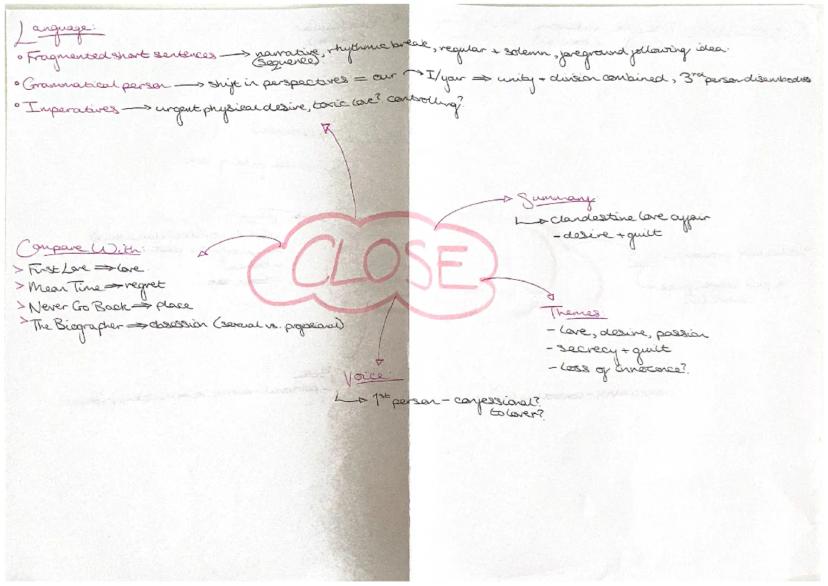 Language:
• Fragmented short sentences → narrative, rhythmic break, regular + solemn, foreground following idea.
(sequence)
• Grammatical person → shift in perspectives = our → I/your ⇒ unity + division combined, 3rd person disembodies
• Imperatives → urgent physical desire, toxic love? controlling?
Summary
↳ clandestine love affair
- desire + guilt
CLOSE
Compare With:
> First Love ⇒ love.
> Mean Time ⇒ regret
> Never Go Back ⇒ place
> The Biographer ⇒ obsession (sexual vs. professional)
Themes
- love, desire, passion
- secrecy + guilt
- loss of innocence?
Voice:
↳ 1st person - confessional?
to lover?